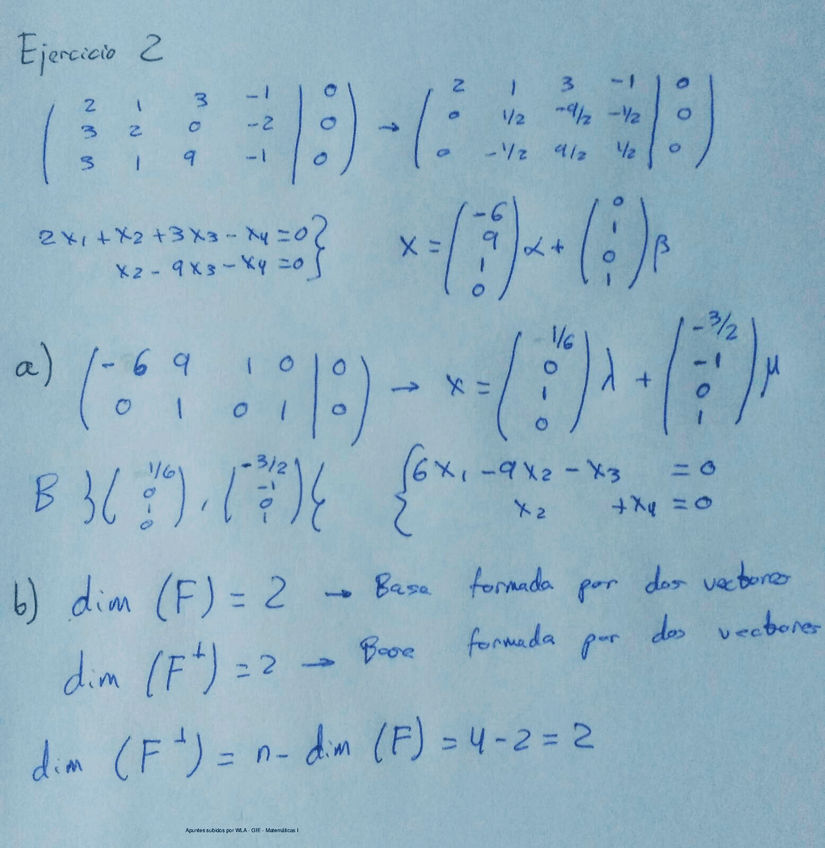 Ejercicio 2
( 2 1 3 -1 | 0 ) → ( 2 1 3 -1 | 0 )
( 3 2 0 -2 | 0 ) ( 0 1/2 -9/2 -1/2 | 0 )
( 3 1 9 -1 | 0 ) ( 0 -1/2 9/2 1/2 | 0 )
2x₁ + x₂ + 3x₃ - x₄ = 0 }
x₂ - 9x₃ - x₄ = 0 }
x = (-6 9 1 0) α + (0 1 0 1) β
a) ( -6 9 1 0 | 0 ) → x = (1/6 0 1 0) λ + (-3/2 -1 0 1) μ
( 0 1 0 1 | 0 )
B } (1/6 0 1 0), (-3/2 -1 0 1) {
{ 6x₁ - 9x₂ - x₃ = 0
x₂ + x₄ = 0
b) dim (F) = 2 → Base formada por dos vectores
dim (F⊥) = 2 → Base formada por dos vectores
dim (F⊥) = n - dim (F) = 4 - 2 = 2
Apuntes subidos por WLA - GIE - Matemáticas I